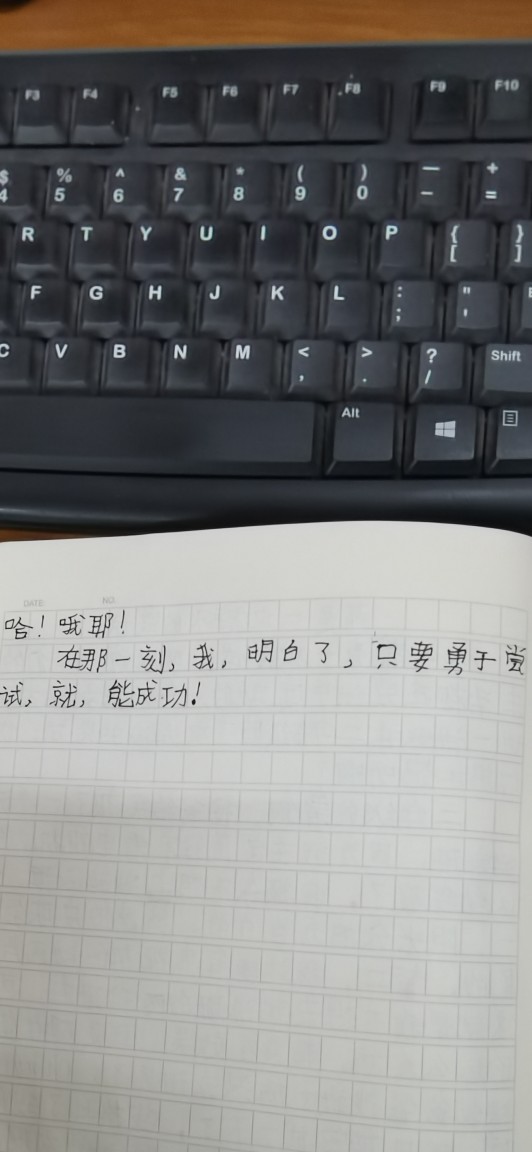 F3 F4 F5 F6 F7 F8 F9 F10
$ % ^ & * ( ) — +
4 5 6 7 8 9 0 - =
R T Y U I O P { }
[ ]
F G H J K L : "
; '
C V B N M < > ? Shift
, . /
Alt
DATE NO.
哈！哦耶！
在那一刻，我，明白了，只要勇于尝
试，就，能成功！